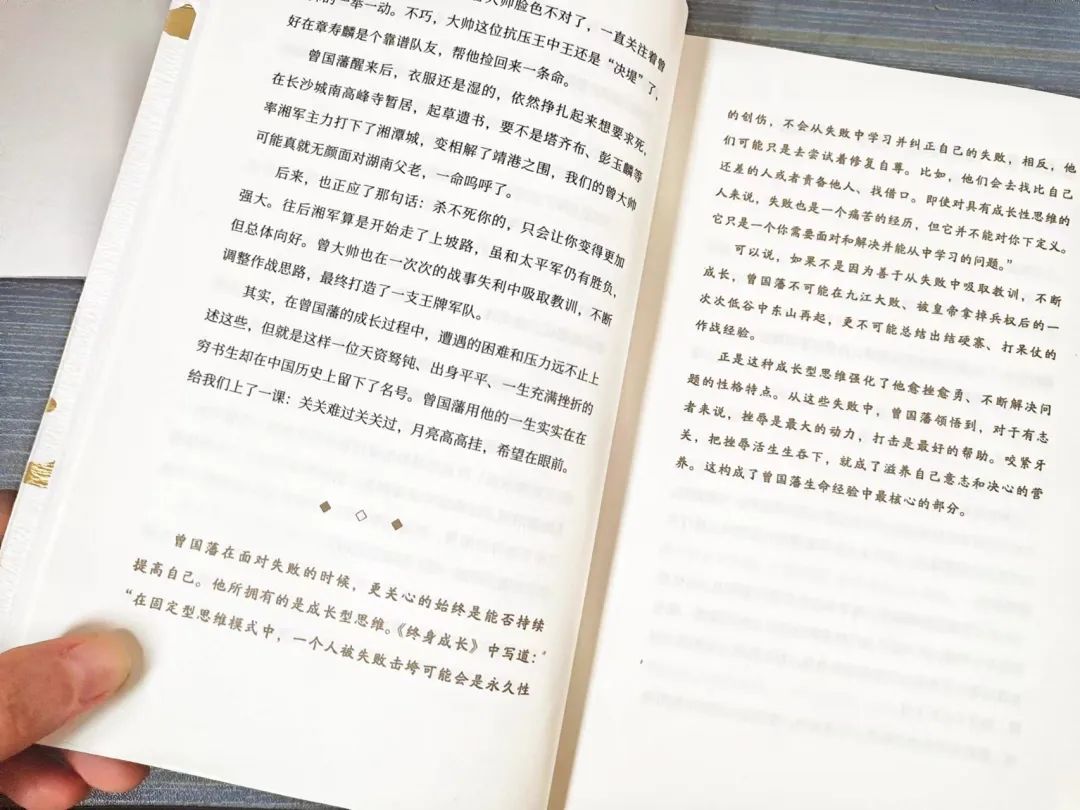 大帅脸色不对了，一直关注着曾
的一举一动。不巧，大帅这位抗压王中王还是“决堤”了，
好在章寿麟是个靠谱队友，帮他捡回来一条命。
曾国藩醒来后，衣服还是湿的，依然挣扎起来想要求死，
在长沙城南高峰寺暂居，起草遗书，要不是塔齐布、彭玉麟等
率湘军主力打下了湘潭城，变相解了靖港之围，我们的曾大帅
可能真就无颜面对湖南父老，一命呜呼了。
后来，也正应了那句话：杀不死你的，只会让你变得更加
强大。往后湘军算是开始走了上坡路，虽和太平军仍有胜负，
但总体向好。曾大帅也在一次次的战事失利中吸取教训，不断
调整作战思路，最终打造了一支王牌军队。
其实，在曾国藩的成长过程中，遭遇的困难和压力远不止上
述这些，但就是这样一位天资驽钝、出身平平、一生充满挫折的
穷书生却在中国历史上留下了名号。曾国藩用他的一生实实在在
给我们上了一课：关关难过关关过，月亮高高挂，希望在眼前。
曾国藩在面对失败的时候，更关心的始终是能否持续
提高自己。他所拥有的是成长型思维。《终身成长》中写道：
“在固定型思维模式中，一个人被失败击垮可能会是永久性
的创伤，不会从失败中学习并纠正自己的失败，相反，他
们可能只是去尝试着修复自尊。比如，他们会去找比自己
还差的人或者责备他人、找借口。即使对具有成长性思维的
人来说，失败也是一个痛苦的经历，但它并不能对你下定义。
它只是一个你需要面对和解决并能从中学习的问题。”
可以说，如果不是因为善于从失败中吸取教训，不断
成长，曾国藩不可能在九江大败、被皇帝拿掉兵权后的一
次次低谷中东山再起，更不可能总结出结硬寨、打呆仗的
作战经验。
正是这种成长型思维强化了他愈挫愈勇、不断解决问
题的性格特点。从这些失败中，曾国藩领悟到，对于有志
者来说，挫辱是最大的动力，打击是最好的帮助。咬紧牙
关，把挫辱活生生吞下，就成了滋养自己意志和决心的营
养。这构成了曾国藩生命经验中最核心的部分。